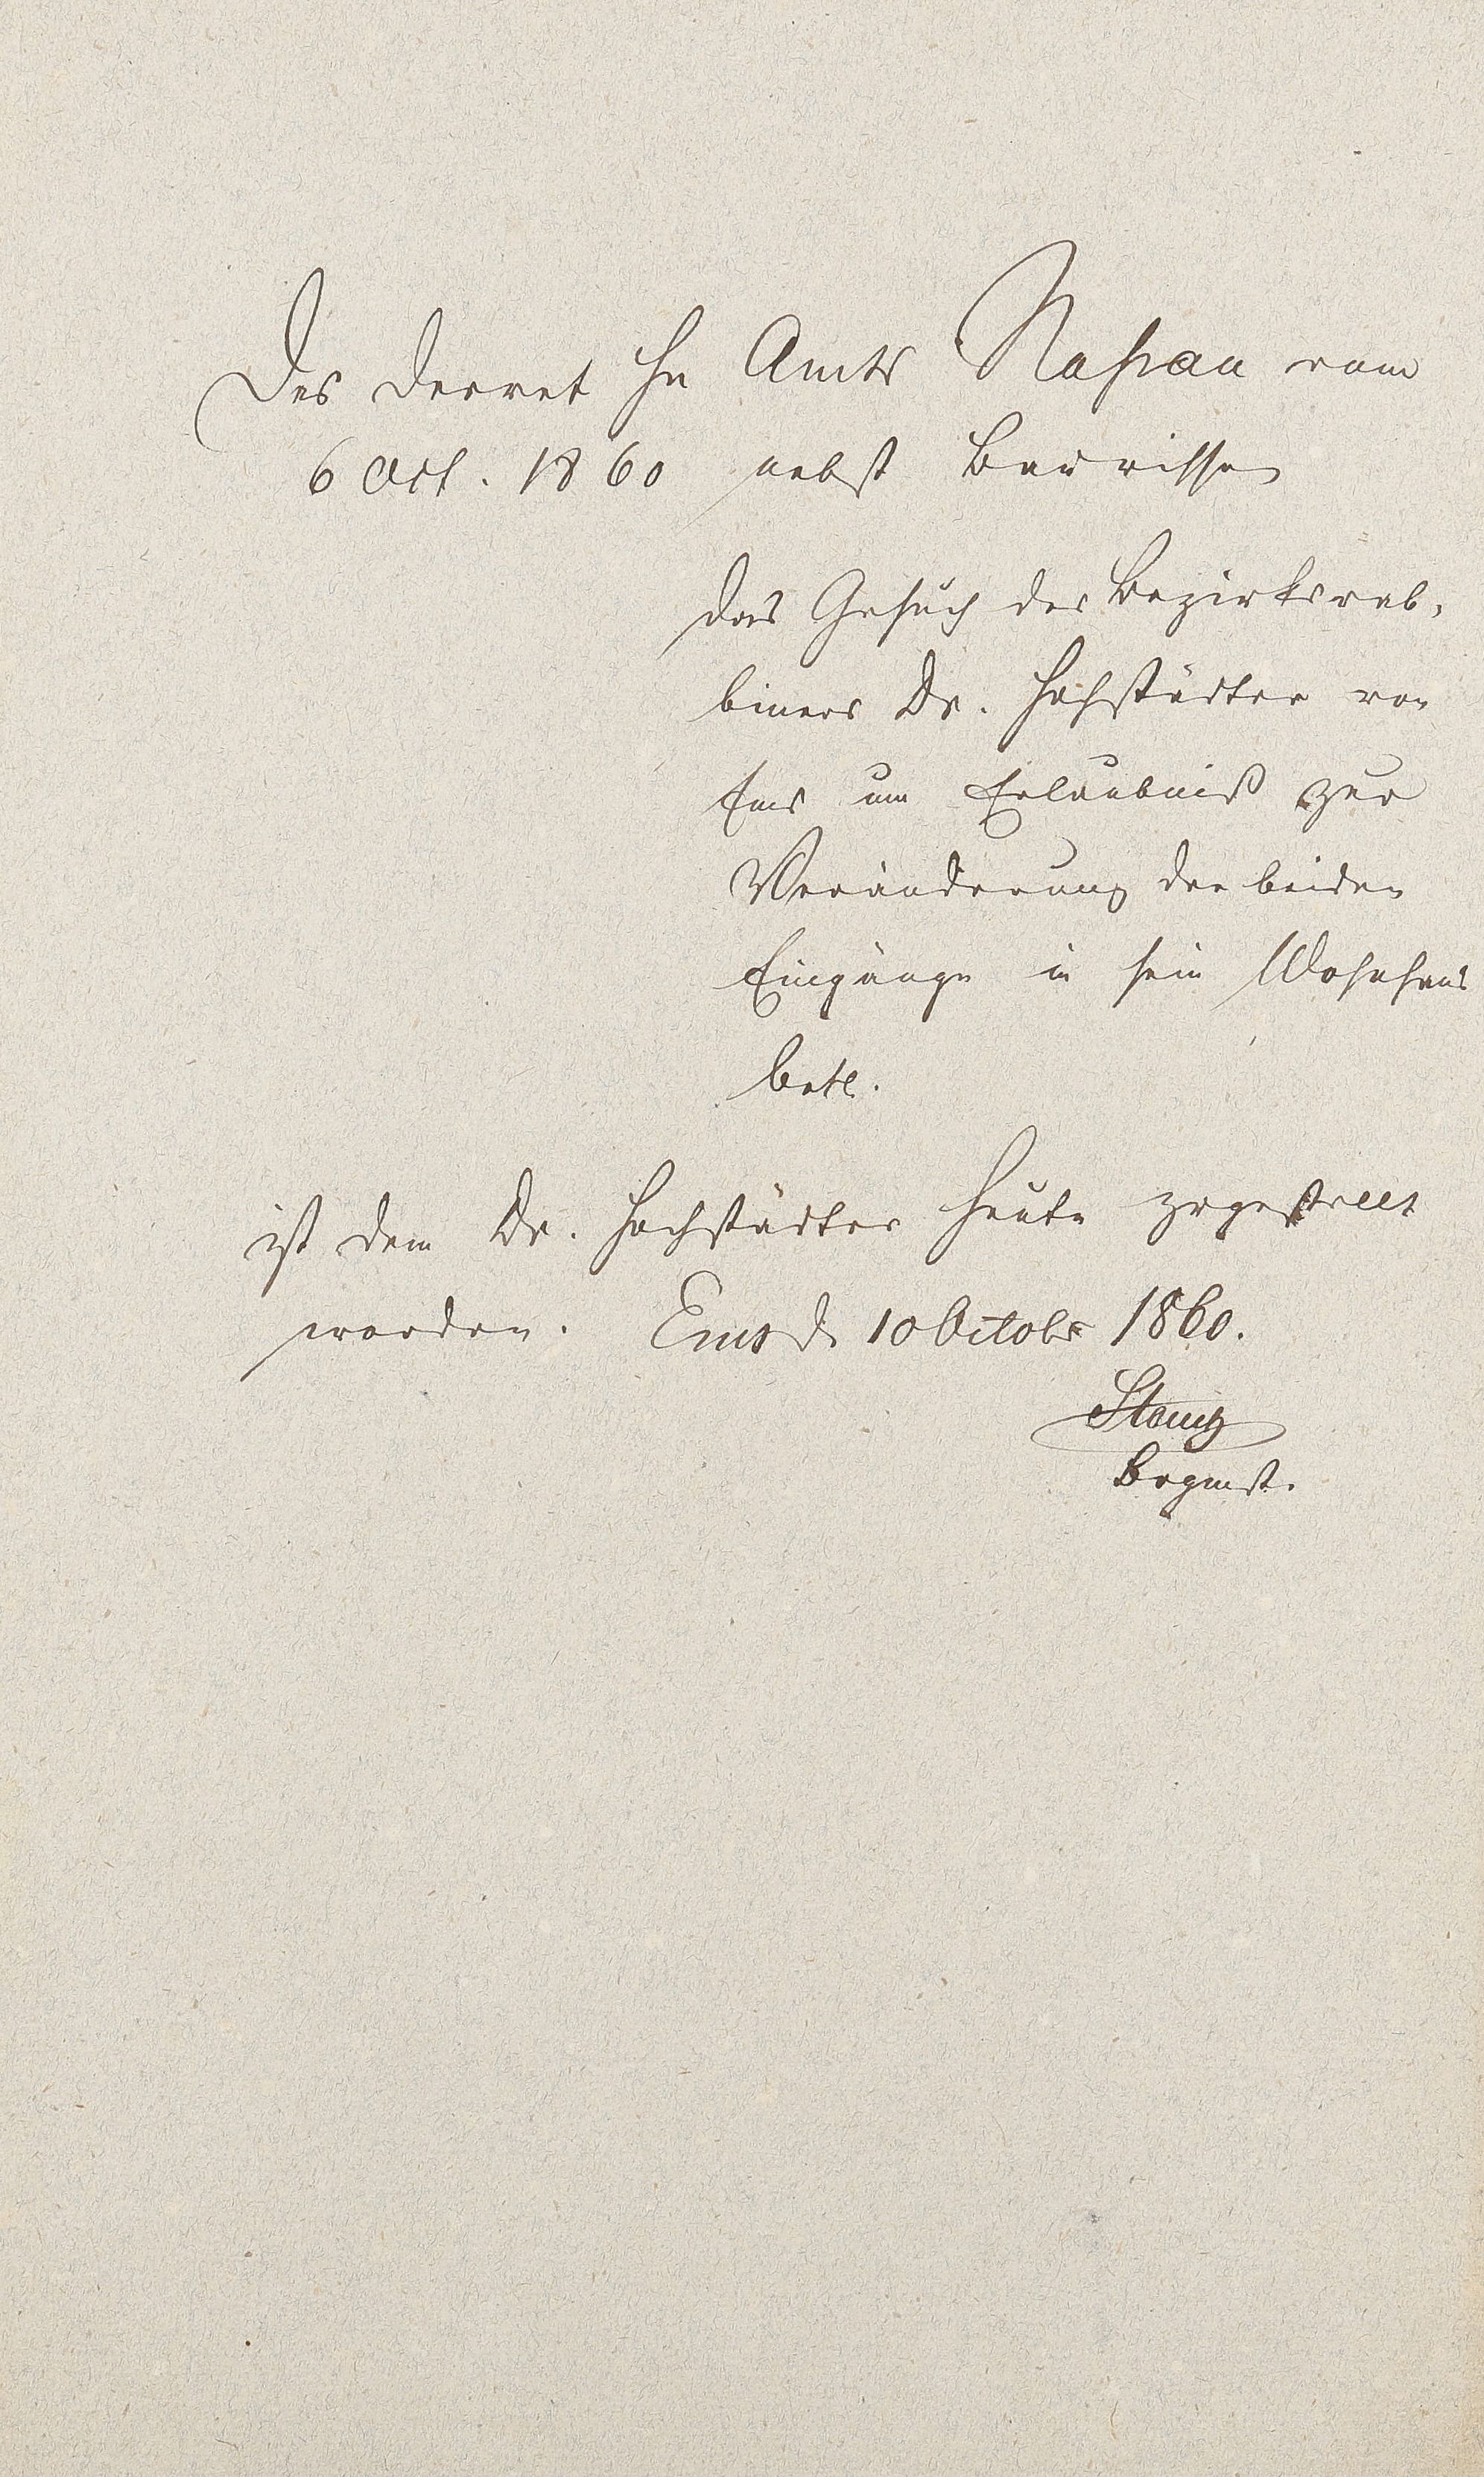 Das Decret Hn Amts Naßau vom
6 Oct. 1860 nebst Baurissen
das Gesuch des Bezirksrab,
biners Dr. Hochstädter von
Ems um Erlaubniß zur
Veränderung der beiden
Eingänge in sein Wohnhaus
betr.
ist dem Dr. Hochstädter heute zugestellt
worden. Ems d. 10 Octobr 1860.
Brgmst.